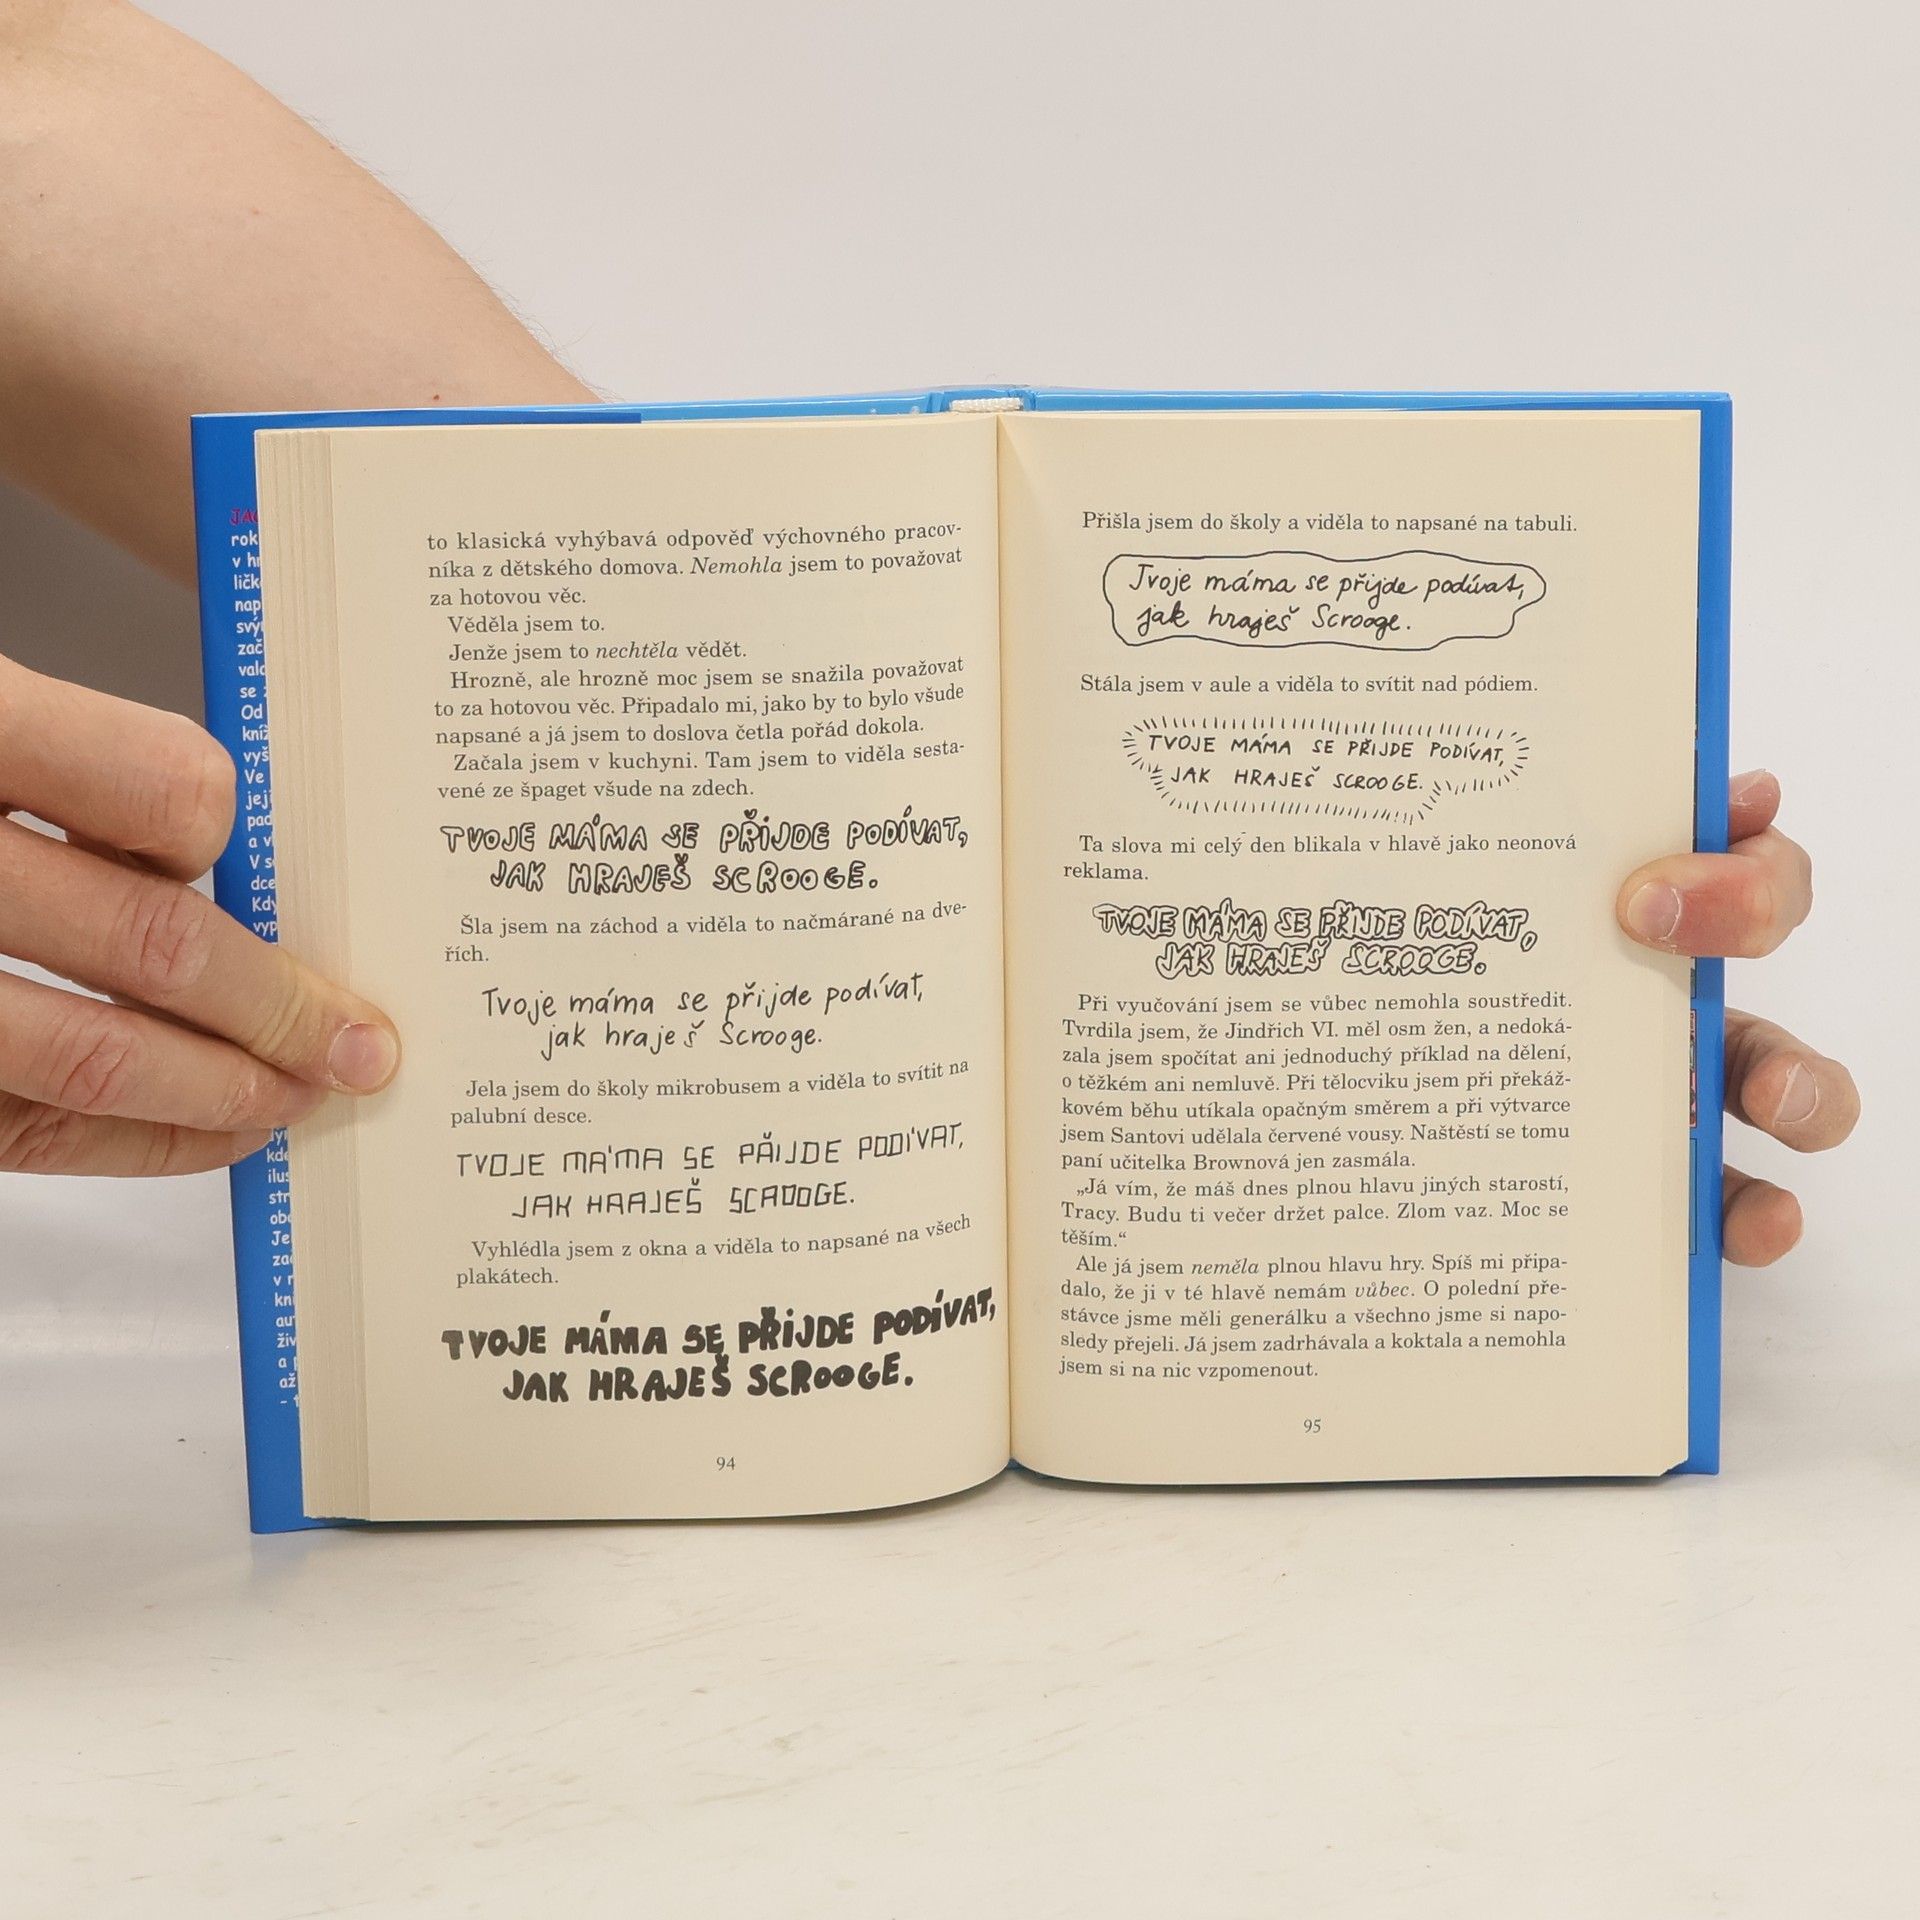 to klasická vyhýbavá odpověď výchovného pracov-
níka z dětského domova. Nemohla jsem to považovat
za hotovou věc.
Věděla jsem to.
Jenže jsem to nechtěla vědět.
Hrozně, ale hrozně moc jsem se snažila považovat
to za hotovou věc. Připadalo mi, jako by to bylo všude
napsané a já jsem to doslova četla pořád dokola.
Začala jsem v kuchyni. Tam jsem to viděla sesta-
vené ze špaget všude na zdech.
TVOJE MÁMA SE PŘIJDE PODÍVAT,
JAK HRAJEŠ SCROOGE.
Šla jsem na záchod a viděla to načmárané na dve-
řích.
Tvoje máma se přijde podívat,
jak hraješ Scrooge.
Jela jsem do školy mikrobusem a viděla to svítit na
palubní desce.
TVOJE MÁMA SE PŘIJDE PODÍVAT,
JAK HRAJEŠ SCROOGE.
Vyhlédla jsem z okna a viděla to napsané na všech
plakátech.
TVOJE MÁMA SE PŘIJDE PODÍVAT,
JAK HRAJEŠ SCROOGE.
94
Přišla jsem do školy a viděla to napsané na tabuli.
Tvoje máma se přijde podívat,
jak hraješ Scrooge.
Stála jsem v aule a viděla to svítit nad pódiem.
TVOJE MÁMA SE PŘIJDE PODÍVAT,
JAK HRAJEŠ SCROOGE.
Ta slova mi celý den blikala v hlavě jako neonová
reklama.
TVOJE MÁMA SE PŘIJDE PODÍVAT,
JAK HRAJEŠ SCROOGE.
Při vyučování jsem se vůbec nemohla soustředit.
Tvrdila jsem, že Jindřich VI. měl osm žen, a nedoká-
zala jsem spočítat ani jednoduchý příklad na dělení,
o těžkém ani nemluvě. Při tělocviku jsem při překáž-
kovém běhu utíkala opačným směrem a při výtvarce
jsem Santovi udělala červené vousy. Naštěstí se tomu
paní učitelka Brownová jen zasmála.
„Já vím, že máš dnes plnou hlavu jiných starostí,
Tracy. Budu ti večer držet palce. Zlom vaz. Moc se
těším.“
Ale já jsem neměla plnou hlavu hry. Spíš mi připa-
dalo, že ji v té hlavě nemám vůbec. O polední pře-
stávce jsme měli generálku a všechno jsme si napo-
sledy přejeli. Já jsem zadrhávala a koktala a nemohla
jsem si na nic vzpomenout.
95